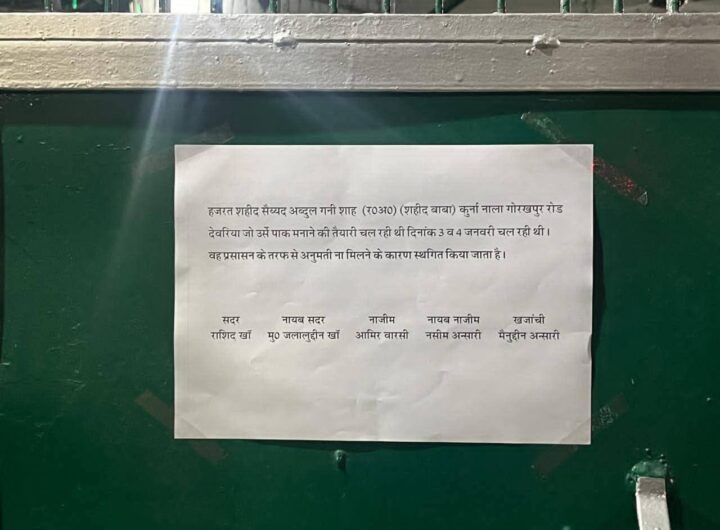 हजरत शहीद सैय्यद अब्दुल गनी शाह (र0अ0) (शहीद बाबा) कुर्ना नाला गोरखपुर रोड
देवरिया जो उर्से पाक मनाने की तैयारी चल रही थी दिनांक 3 व 4 जनवरी चल रही थी।
वह प्रसासन के तरफ से अनुमती ना मिलने के कारण स्थगित किया जाता है।
सदर नायब सदर नाजीम नायब नाजीम खजांची
राशिद खाँ मु0 जलालुद्दीन खाँ आमिर वारसी नसीम अन्सारी मैनुद्दीन अन्सारी